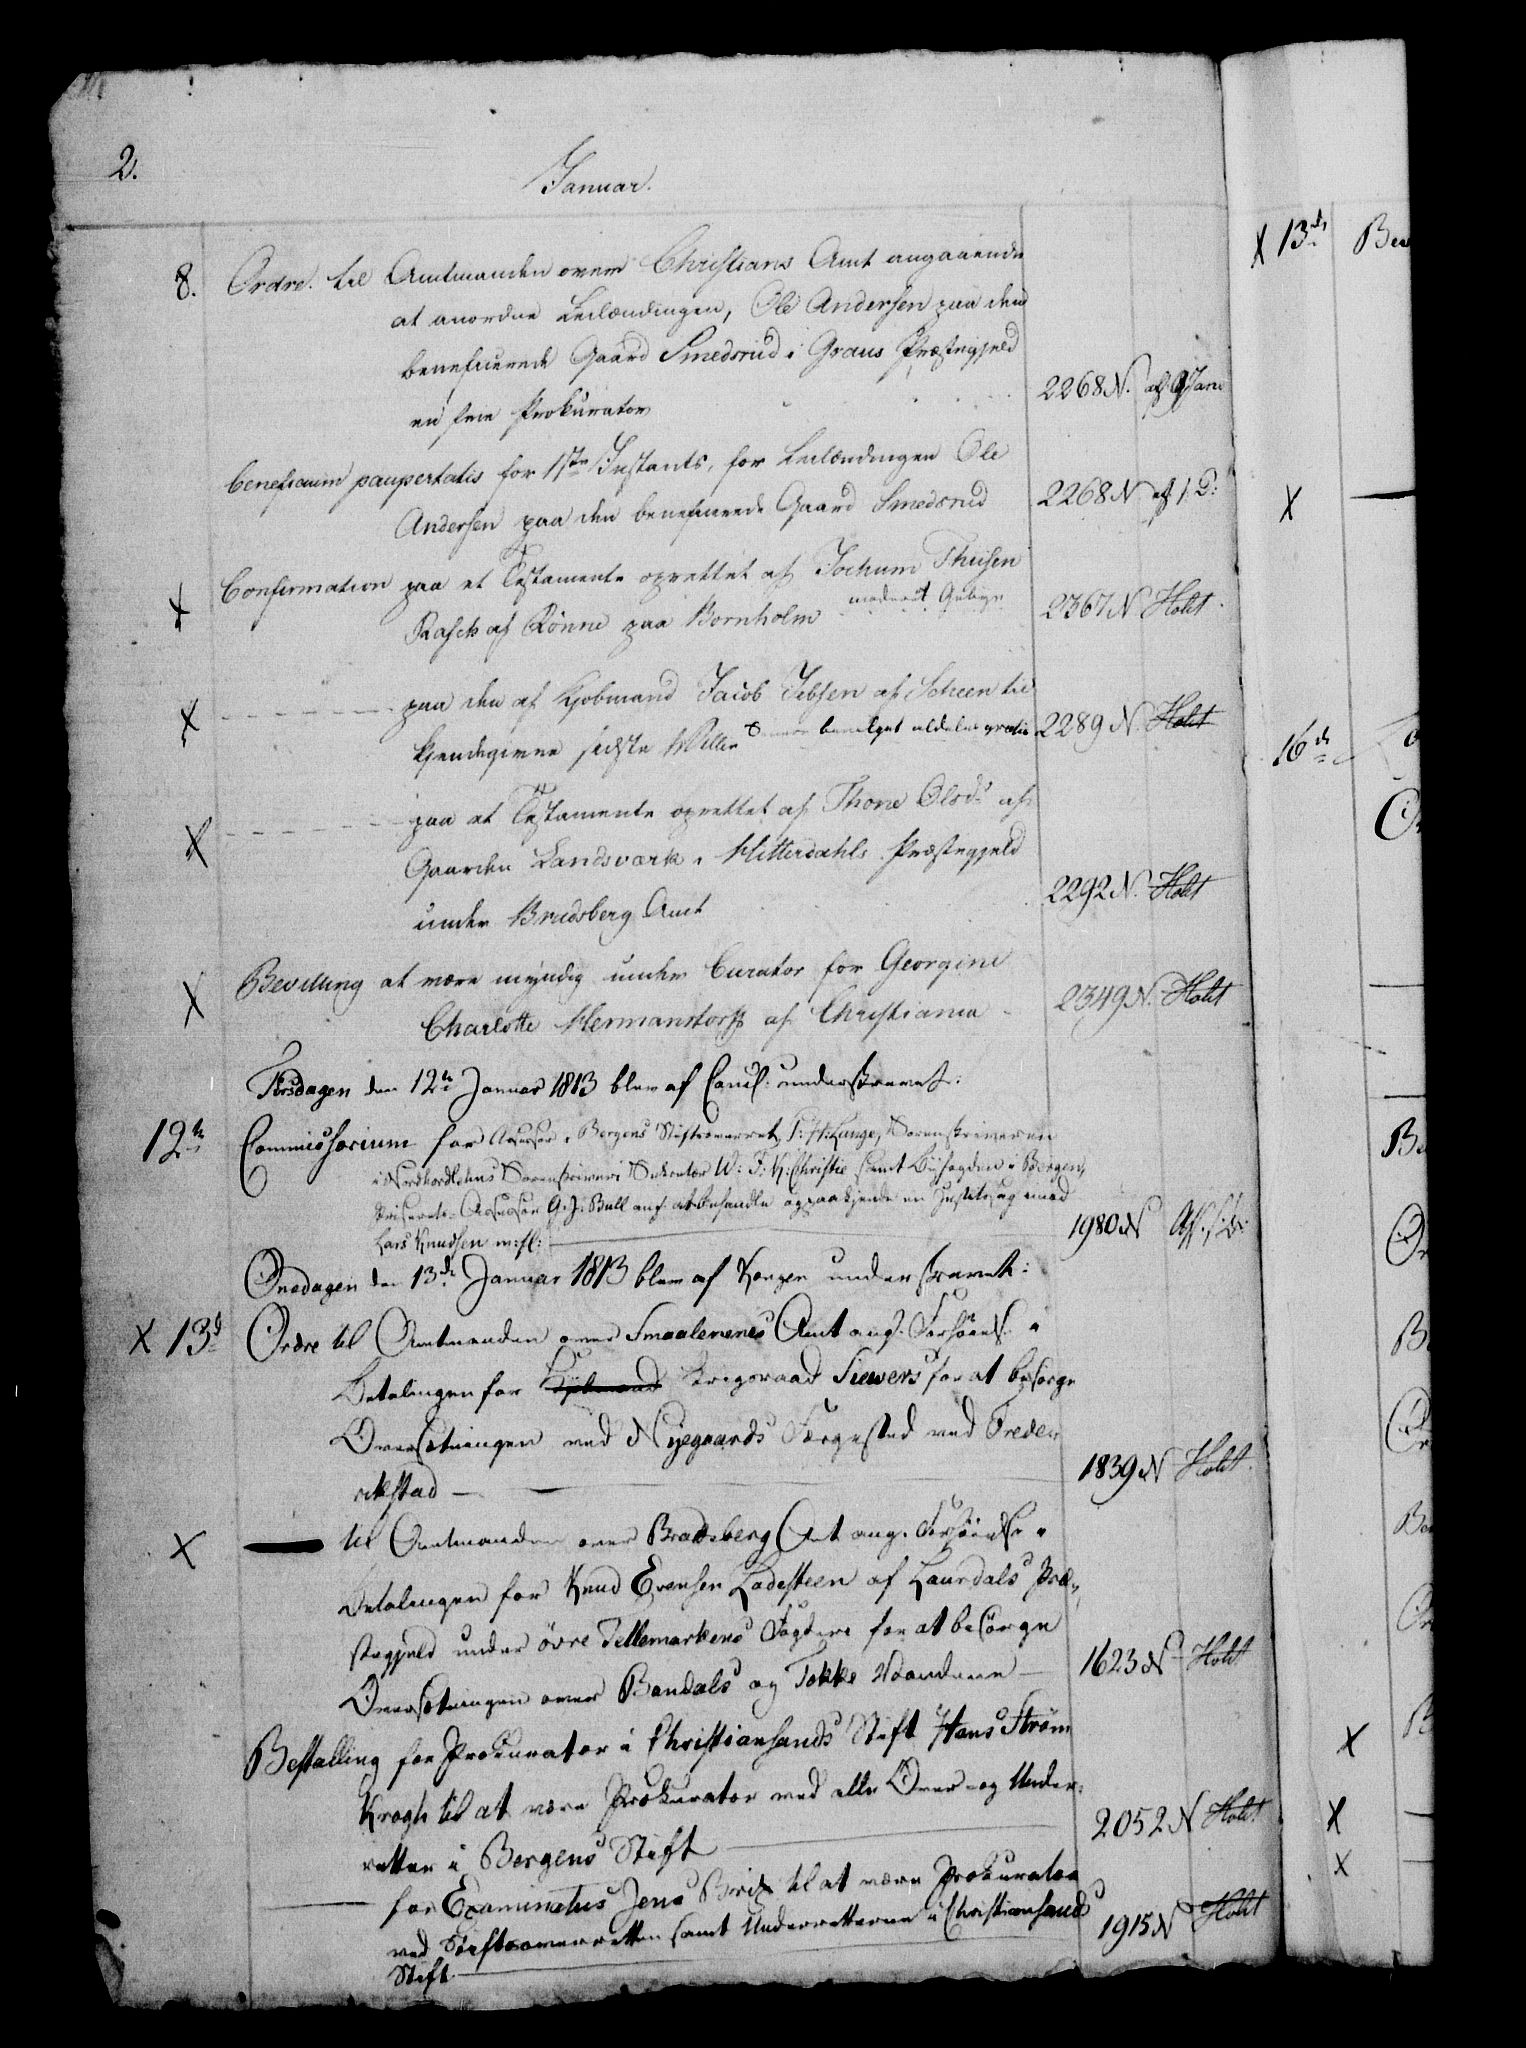 2.
Januar.
8. Ordre til Amtmanden over Christians Amt angaaende
at anordne Leilændingen, Ole Andersen paa den
beneficerede Gaard Smedsrud i Grans Præstegjeld
en frie Prokurator 2268 N. af 9 Jan
beneficium paupertatis for 1ste Instants, for Leilændingen Ole
Andersen paa den beneficerede Gaard Smedsrud 2268 N af s. D:
X Confirmation paa et Testamente oprettet af Jochum Thiesen
Rasch af Rønne paa Bornholm moderat Gebyr 2367 N Holst.
X paa den af Kjøbmand Jacob Jebsen af Scheen til
kjendegivne sidste Villie bevilget aldeles gratis 2289 N. Holst
X paa et Testamente oprettet af Thone Olsdr af
Gaarden Landsværk i Hitterdahls Præstegjeld
under Bradsberg Amt 2292 N. Holst
X Bevilling at være myndig under Curator for Georgine
Charlotte Hermanstorff af Christiania 2349 N. Holst
Tirsdagen den 12te Januar 1813 blev af Cancl: underskrevet:
12te Commissorium for Assessor i Bergens Stiftsoverret, P: H: Lange, Sorenskriveren
i Nordhordlehns Sorenskriveri Sekretær W: F: K: Christie samt Byefogden i Bergen,
Assessor G. J: Bull ang. at behandle og paakjende en Justitssag imod
Lars Knudsen m: fl: 1980 N Aff. s: D:
Onsdagen den 13de Januar 1813 blev af Kongen underskrevet:
X 13d Ordre til Amtmanden over Smaalenenes Amt ang. Forhøielse i
Betalingen for Kjøbmand Krigsraad Siewers for at besørge
Oversætningen ved Nyegaards Færgested ved Freder
rikstad 1839 N Holst.
X til Amtmanden over Bradsberg Amt ang. Forhøielse i
Betalingen for Knud Evensen Ladesteen af Laurdals Præ-
stegjeld under övre Tellemarkens Fogderi for at besörge
Oversætningen over Bandals og Tokke Vandene 1623 N Holst
Bestalling for Prokurator i Christiansands Stift Hans Strøm
Krogh til at være Prokurator ved alle Over- og Under-
retter i Bergens Stift 2052 N Holst
for Examinatus Jens til at være Prokurator
ved Stiftsoverretten samt Underretterne i Christiansands
Stift 1915 N Holst
X 13de
X
16de
X
X
X